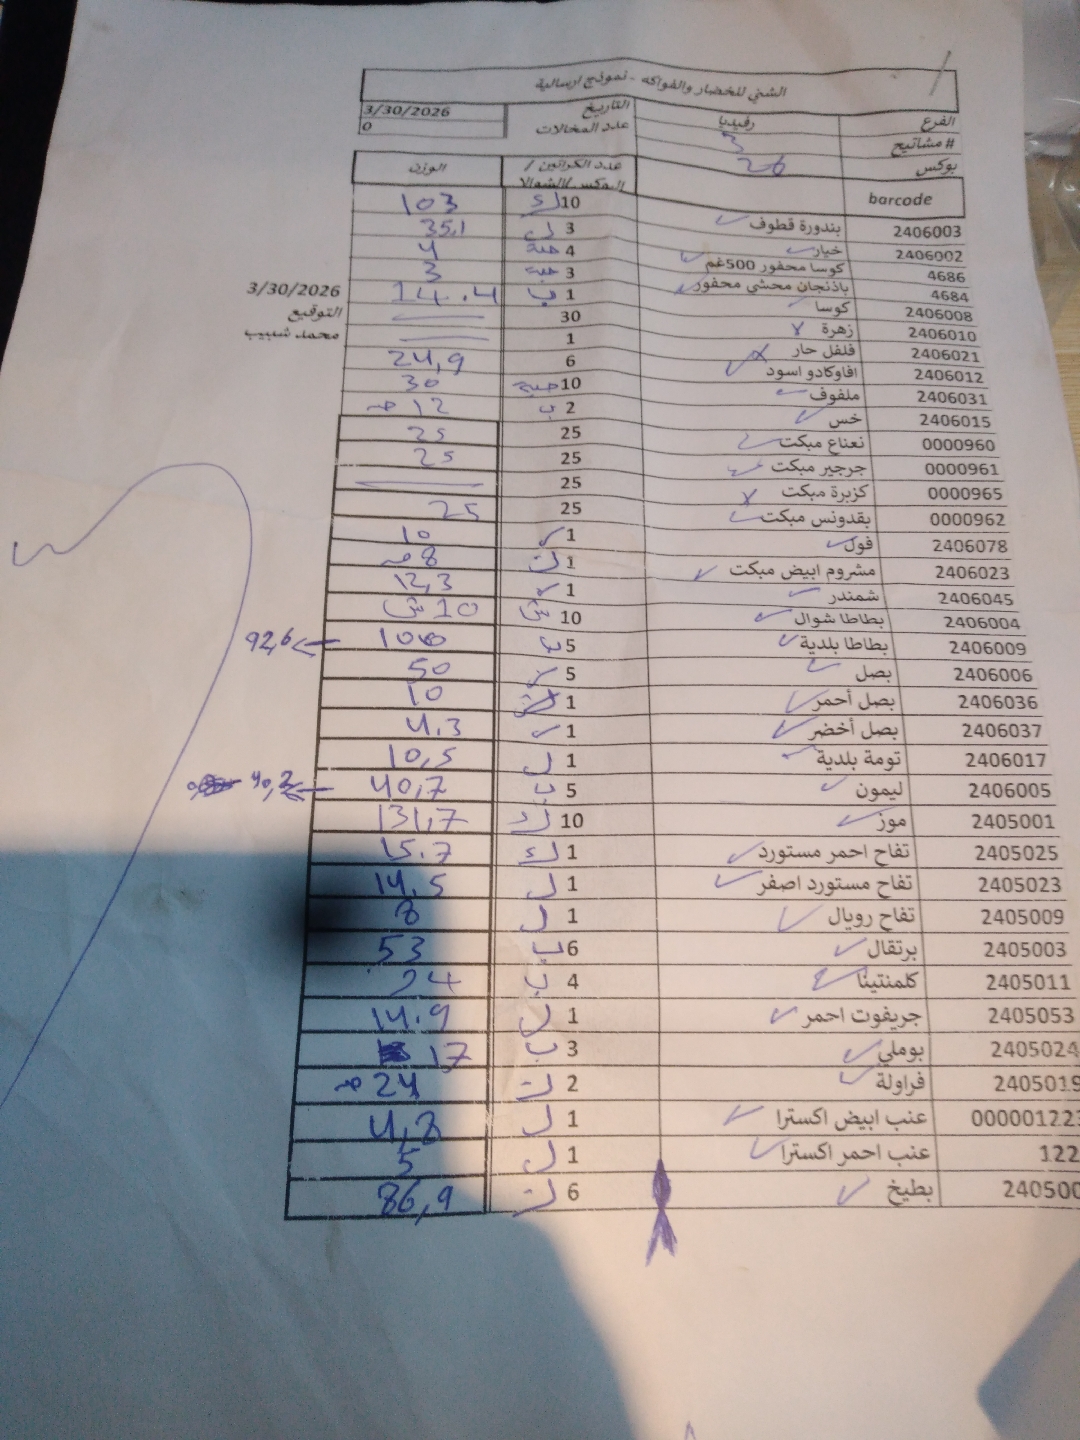 الشني للخضار والفواكه - نموذج ارسالية
الفرع رفيديا التاريخ 3/30/2026
# مشاتيح 3 عدد المخالات 0
بوكس 26
barcode عدد الكراتين / البوكس/الشوال الوزن
2406003 بندورة قطوف 10 ك 103
2406002 خيار 3 ل 35.1
4686 كوسا محفور 500غم 4 حبة 4
4684 باذنجان محشي محفور 3 حبة 3
2406008 كوسا 1 ب 14.4
2406010 زهرة 30
2406021 فلفل حار 1
2406012 افاوكادو اسود 6 24,9
2406031 ملفوف 10 حبة 30
2406015 خس 2 ب 12
0000960 نعناع مبكت 25 25
0000961 جرجير مبكت 25 25
0000965 كزبرة مبكت 25
0000962 بقدونس مبكت 25 25
2406078 فول 1 10
2406023 مشروم ابيض مبكت 1 8
2406045 شمندر 1 12,3
2406004 بطاطا شوال 10 ش 10 ش
2406009 بطاطا بلدية 5 ب 100 92,6
2406006 بصل 5 50
2406036 بصل أحمر 1 10
2406037 بصل أخضر 1 4.3
2406017 تومة بلدية 1 ل 10,5
2406005 ليمون 5 ب 40,7 40,2
2405001 موز 10 ك 131,7
2405025 تفاح احمر مستورد 1 ك 15.7
2405023 تفاح مستورد اصفر 1 ل 14,5
2405009 تفاح رويال 1 ل 8
2405003 برتقال 6 ب 53
2405011 كلمنتينا 4 ب 24
2405053 جريفوت احمر 1 ل 14.9
2405024 بوملي 3 ب 17
2405019 فراولة 2 24
000001223 عنب ابيض اكسترا 1 ل 4,8
122 عنب احمر اكسترا 1 ل 5
240500 بطيخ 6 86,9
3/30/2026
التوقيع
محمد شبيب